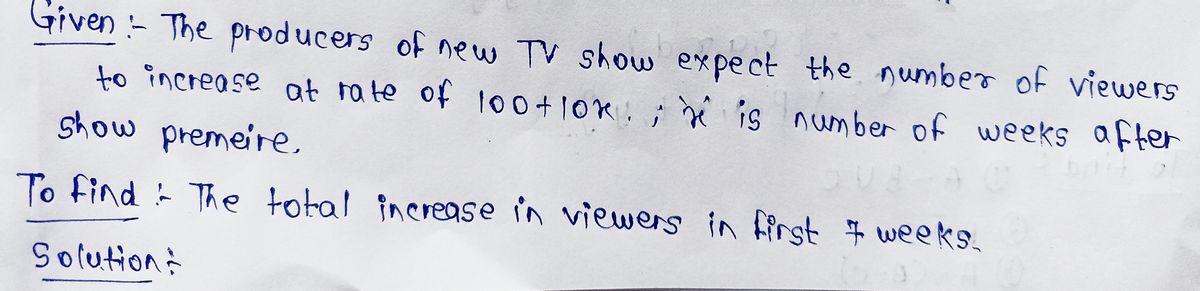 Given :- The producers of new TV show expect the number of viewers
to increase at rate of 100+10x. ; 'x' is number of weeks after
show premeire.
To find :- The total increase in viewers in first 7 weeks.
Solution :-